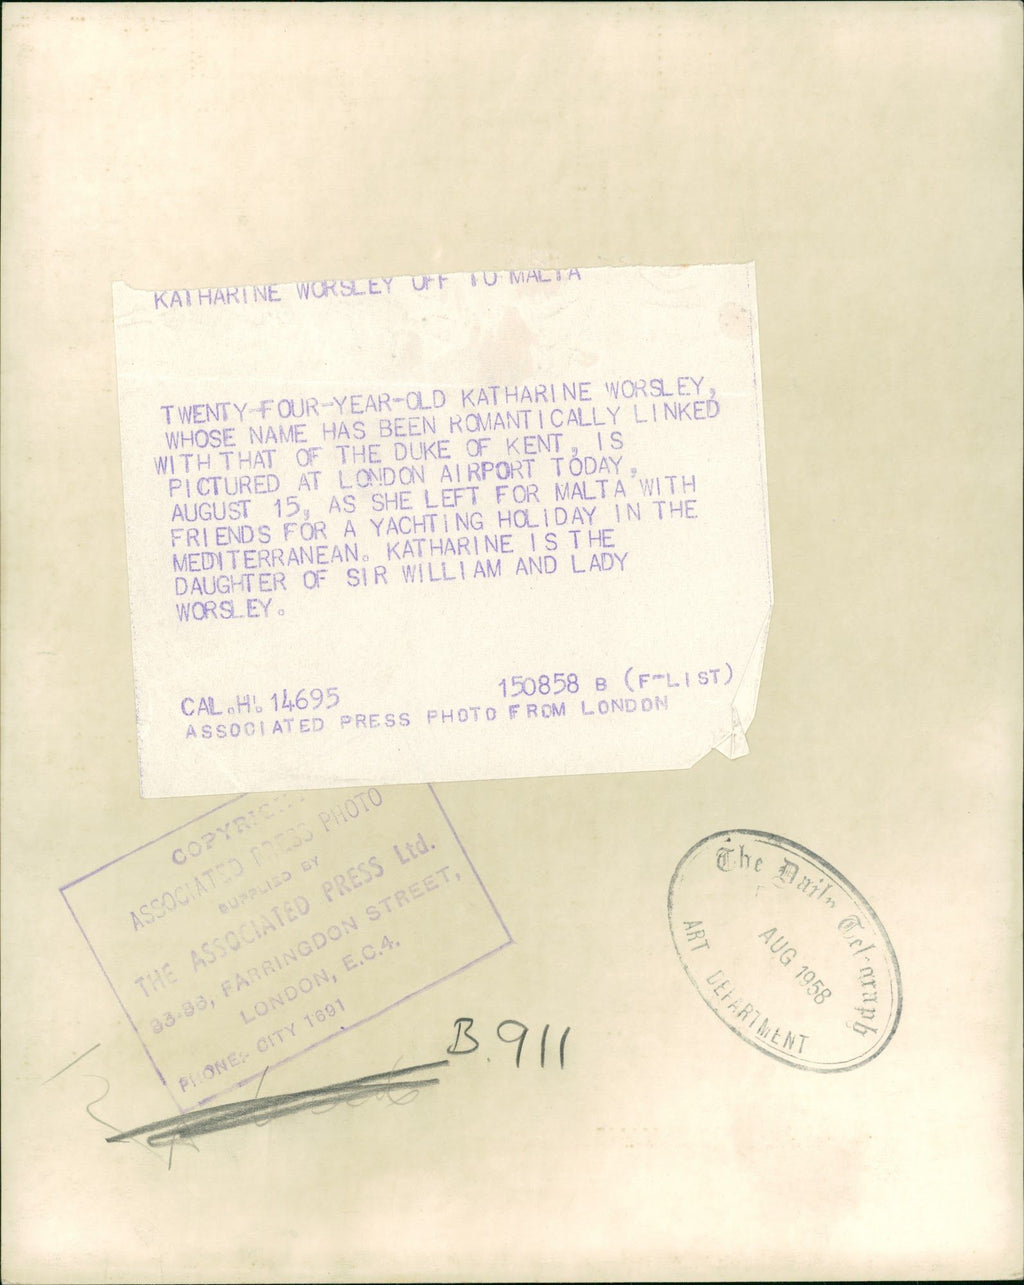 KATHARINE WORSLEY OFF TO MALTA
TWENTY-FOUR-YEAR-OLD KATHARINE WORSLEY,
WHOSE NAME HAS BEEN ROMANTICALLY LINKED
WITH THAT OF THE DUKE OF KENT, IS
PICTURED AT LONDON AIRPORT TODAY,
AUGUST 15, AS SHE LEFT FOR MALTA WITH
FRIENDS FOR A YACHTING HOLIDAY IN THE
MEDITERRANEAN. KATHARINE IS THE
DAUGHTER OF SIR WILLIAM AND LADY
WORSLEY.
CAL.H. 14695 150858 B (F-LIST)
ASSOCIATED PRESS PHOTO FROM LONDON
ASSOCIATED PRESS PHOTO
SUPPLIED BY
THE ASSOCIATED PRESS Ltd.
FARRINGDON STREET,
LONDON, E.C.4.
PHONE:- CITY 1691
The Daily Telegraph
AUG 1958
ART DEPARTMENT
B.911